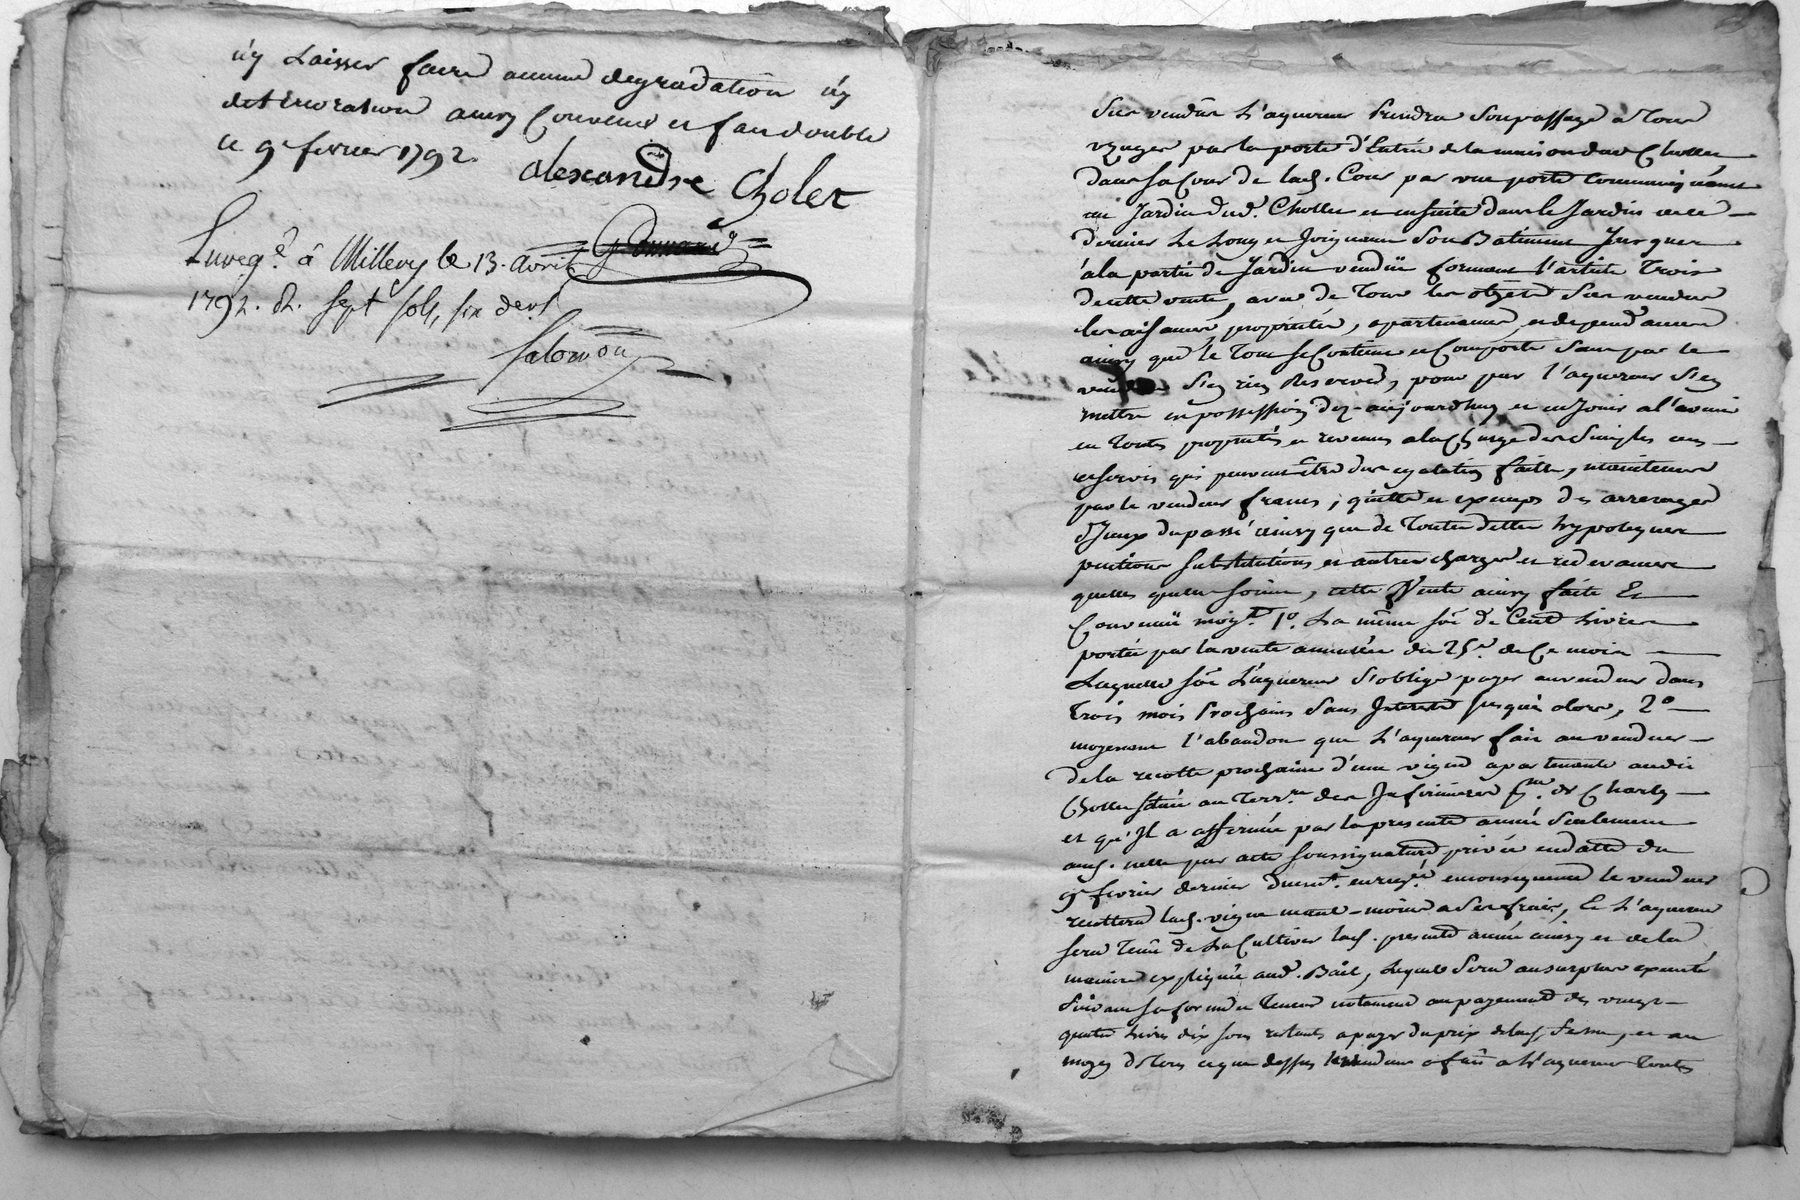 n'y Laisser faire aucune degradation n'y
deterioration ainsy Convenu et fait double
le 9e fevrier 1792.
alexandre Cholet
Enreg.é à Millery le 13. avril
1792. R. sept sols, six den.
Salomon
Sus vendûs L'aquereur Prendra Son passage a Tous
Usages par la porte d'Entrée de la maison dud Chollet
dans sa Cour de lad. Cour par une porte Communiquant
au Jardin dud. Chollet et ensuitte dans le Jardin
dernier Le Long et Joignant Son Batiment Jusques
à la partie de Jardin vendüe formant l'article Trois
de cette vente, avec de Tous les objets Sus vendus
les aisances, proprietés, apartenances et dependances
ainsy que le Tout se Contient et Comporte Sans par le
vendeur S'en rien Reserver, pour par l'aquereur S'en
mettre en possession dez-aujourdhuy et en Jouir a l'avenir
en Toutes proprietés et revenus a la Charge des Simples cens
et servis qui peuvent Etre dus
par le vendeur francs, quitte et exempts des arrerages
d'Iceux du passé ainsy que de Toutes dettes hypoteques
pentions Substitutions et autres charges et redevances
quelles quelles soient, cette Vente ainsy faite Et
Convenüe moy.t 1o. La même som̃e de Cent Livres
portée par la vente annulée du 25e. de Ce mois
Laquelle som̃e L'aquereur S'oblige payer au vendeur dans
Trois mois Prochains Sans Interests Jusqu'à alors, 2o
moyenant l'abandon que L'aquereur fait au vendeur
de la recolte prochaine d'une vigne apartenante audit
Chollet située au Terr.re des Infirmieres de Charly
et qu'Il a affermée par la presente année Seulement
par acte sous signature privée en datte du
9e fevrier dernier duem.t enreg.ré en consequence le vendeur
recoltera lad. vigne a Ses frais, Et L'aquereur
Sera Tenu de La Cultiver lad. presente année ainsy et de la
maniere expliquée aud. Bail, Lequel Sera au surplus executé
Suivant sa forme et Teneur notament au payement des vingt
quatre Livres dix sous restants a payer du prix de lad. ferme, et au
moyen de Tout ce que dessus le vendeur a fait a L'aquereur Toutes